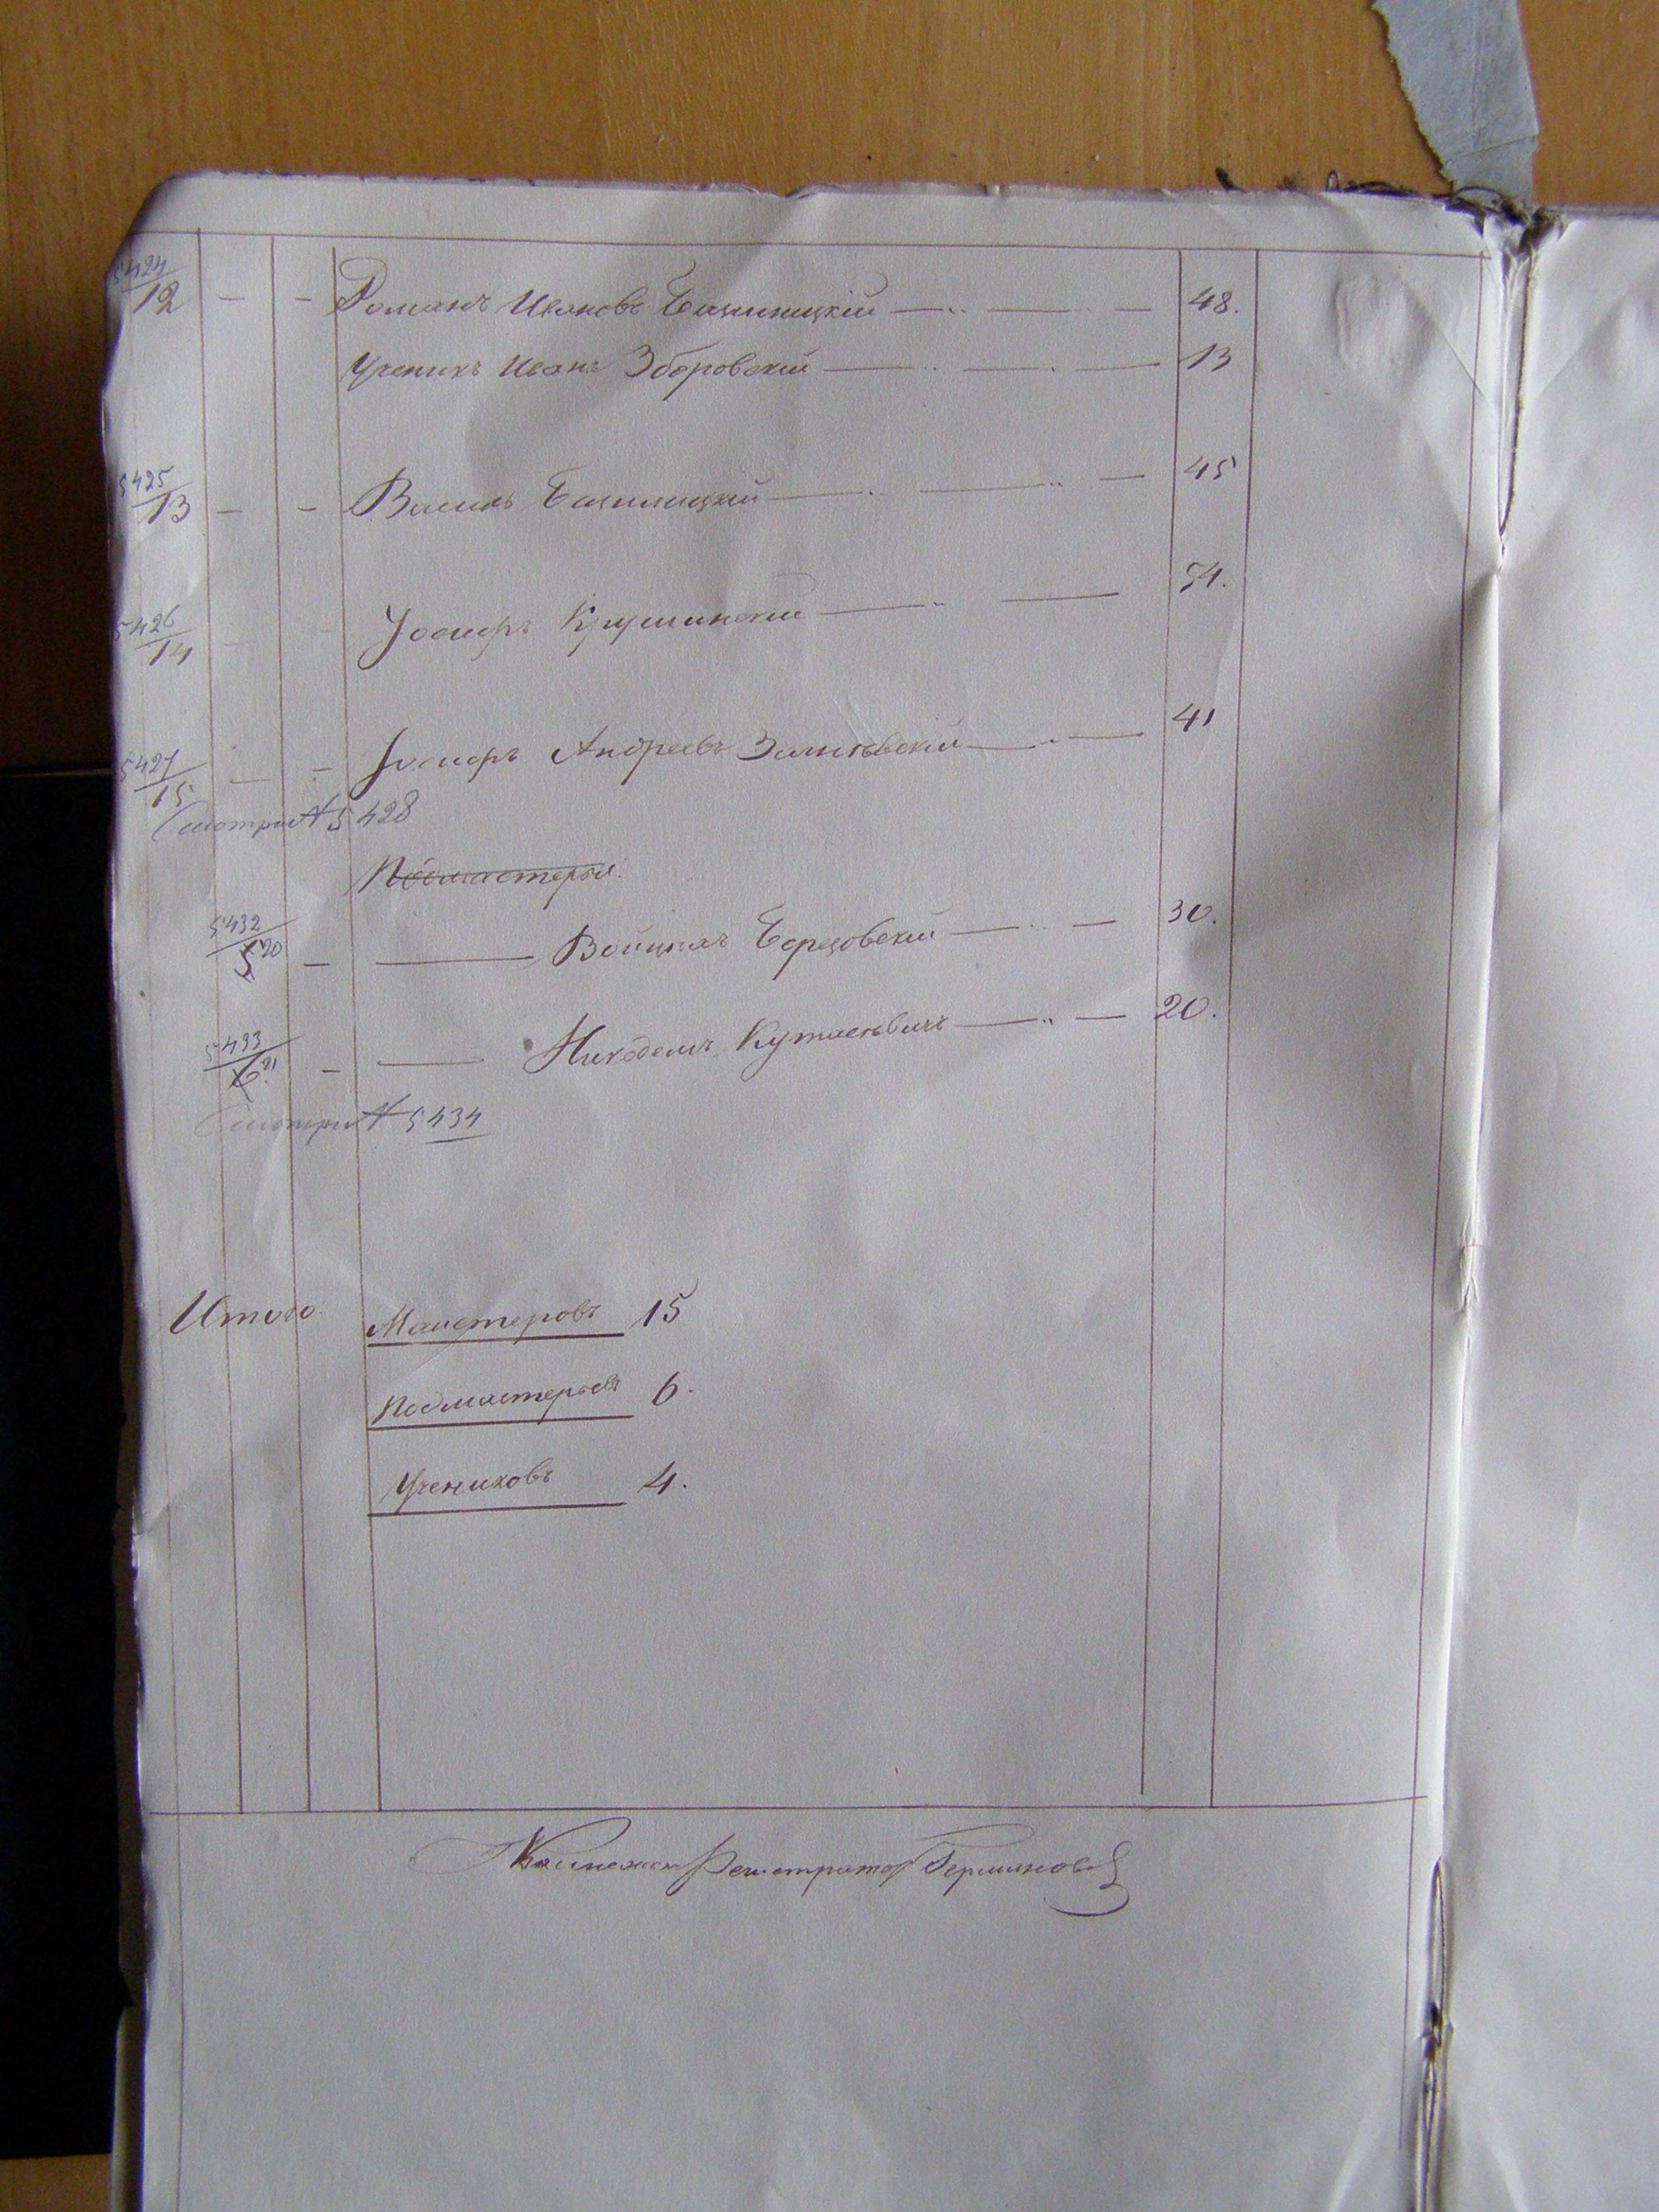 5424
12 — — Романъ Ивановъ Башиницкій — — — 48.
Ученикъ Иванъ Зборовскій — — — 13
5425
13 — — Василь — — — 45
5426
14 — Іосифъ Крушинскій — — 54.
5427
15 — — Іосифъ Андреевъ — — 41
Смотри № 5428
Подмастерья.
5432
5 20 — — Войцехъ Березовскій — — 30.
5433
6 21. — — Никодемъ — — 20.
Смотри № 5434
Итого Маистеровъ 15
Подмастерьевъ 6.
Учениковъ 4.
Регистраторъ